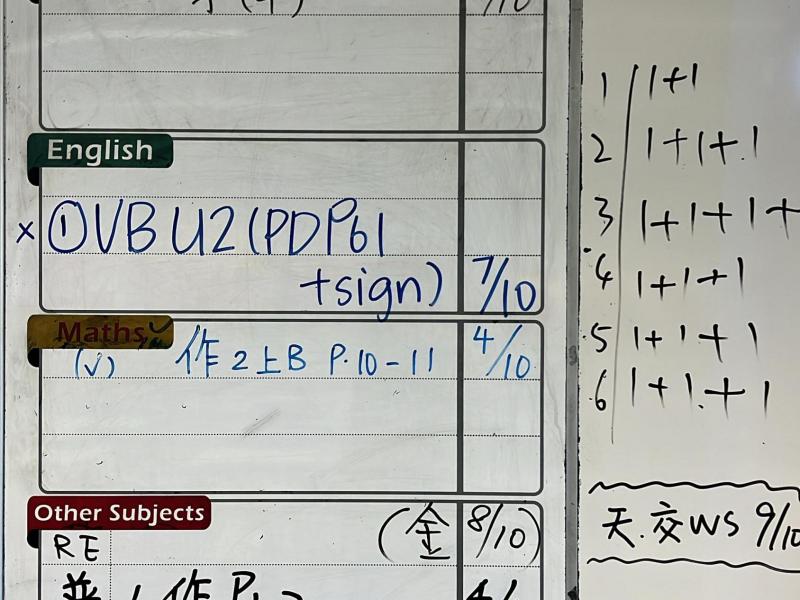 /10
English
× ①VB U2(PDP61
+sign) 7/10
Maths✓
(✓) 作2上B P.10-11 4/10
Other Subjects
RE (金 8/10)
普 作 P.
1 1+1
2 1+1+1
3 1+1+1+
4 1+1+1
5 1+1+1
6 1+1+1
天.交WS 9/10